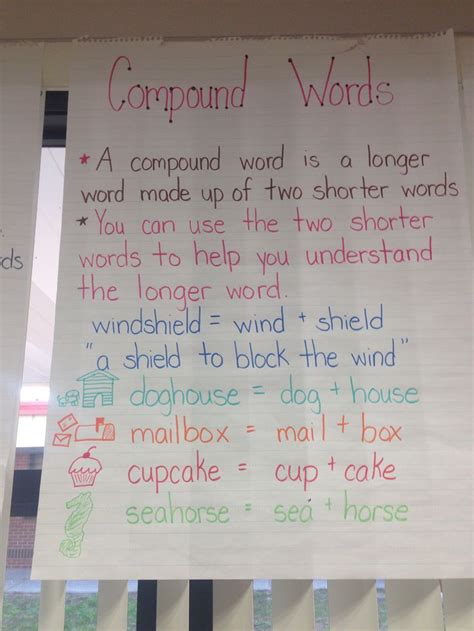 Compound Words
* A compound word is a longer
word made up of two shorter words
* You can use the two shorter
words to help you understand
the longer word.
windshield = wind + shield
"a shield to block the wind"
doghouse = dog + house
mailbox = mail + box
cupcake = cup + cake
seahorse = sea + horse